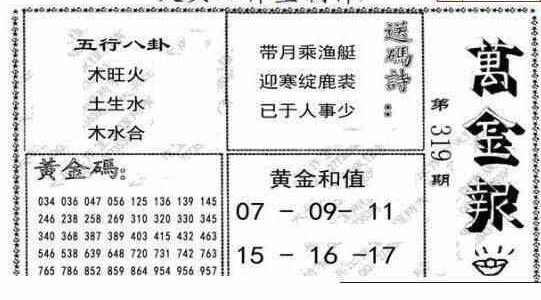 五行八卦
木旺火
土生水
木水合
送碼詩：
带月乘渔艇
迎寒绽鹿裘
已于人事少
萬金報
第319期
黃金碼：
034 036 047 056 125 136 139 145
246 238 258 269 310 320 330 345
340 368 387 389 403 415 432 463
546 538 639 648 720 731 742 763
765 786 852 859 864 954 956 957
黄金和值
07 - 09- 11
15 - 16 -17